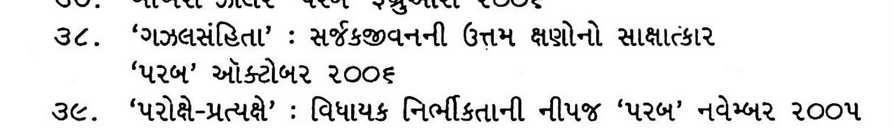 ૩૮. ‘ગઝલસંહિતા’ : સર્જકજીવનની ઉત્તમ ક્ષણોનો સાક્ષાત્કાર
‘પરબ’ ઑક્ટોબર ૨૦૦૬
૩૯. ‘પરોક્ષે-પ્રત્યક્ષે’ : વિધાયક નિર્ભીકતાની નીપજ ‘પરબ’ નવેમ્બર ૨૦૦૫